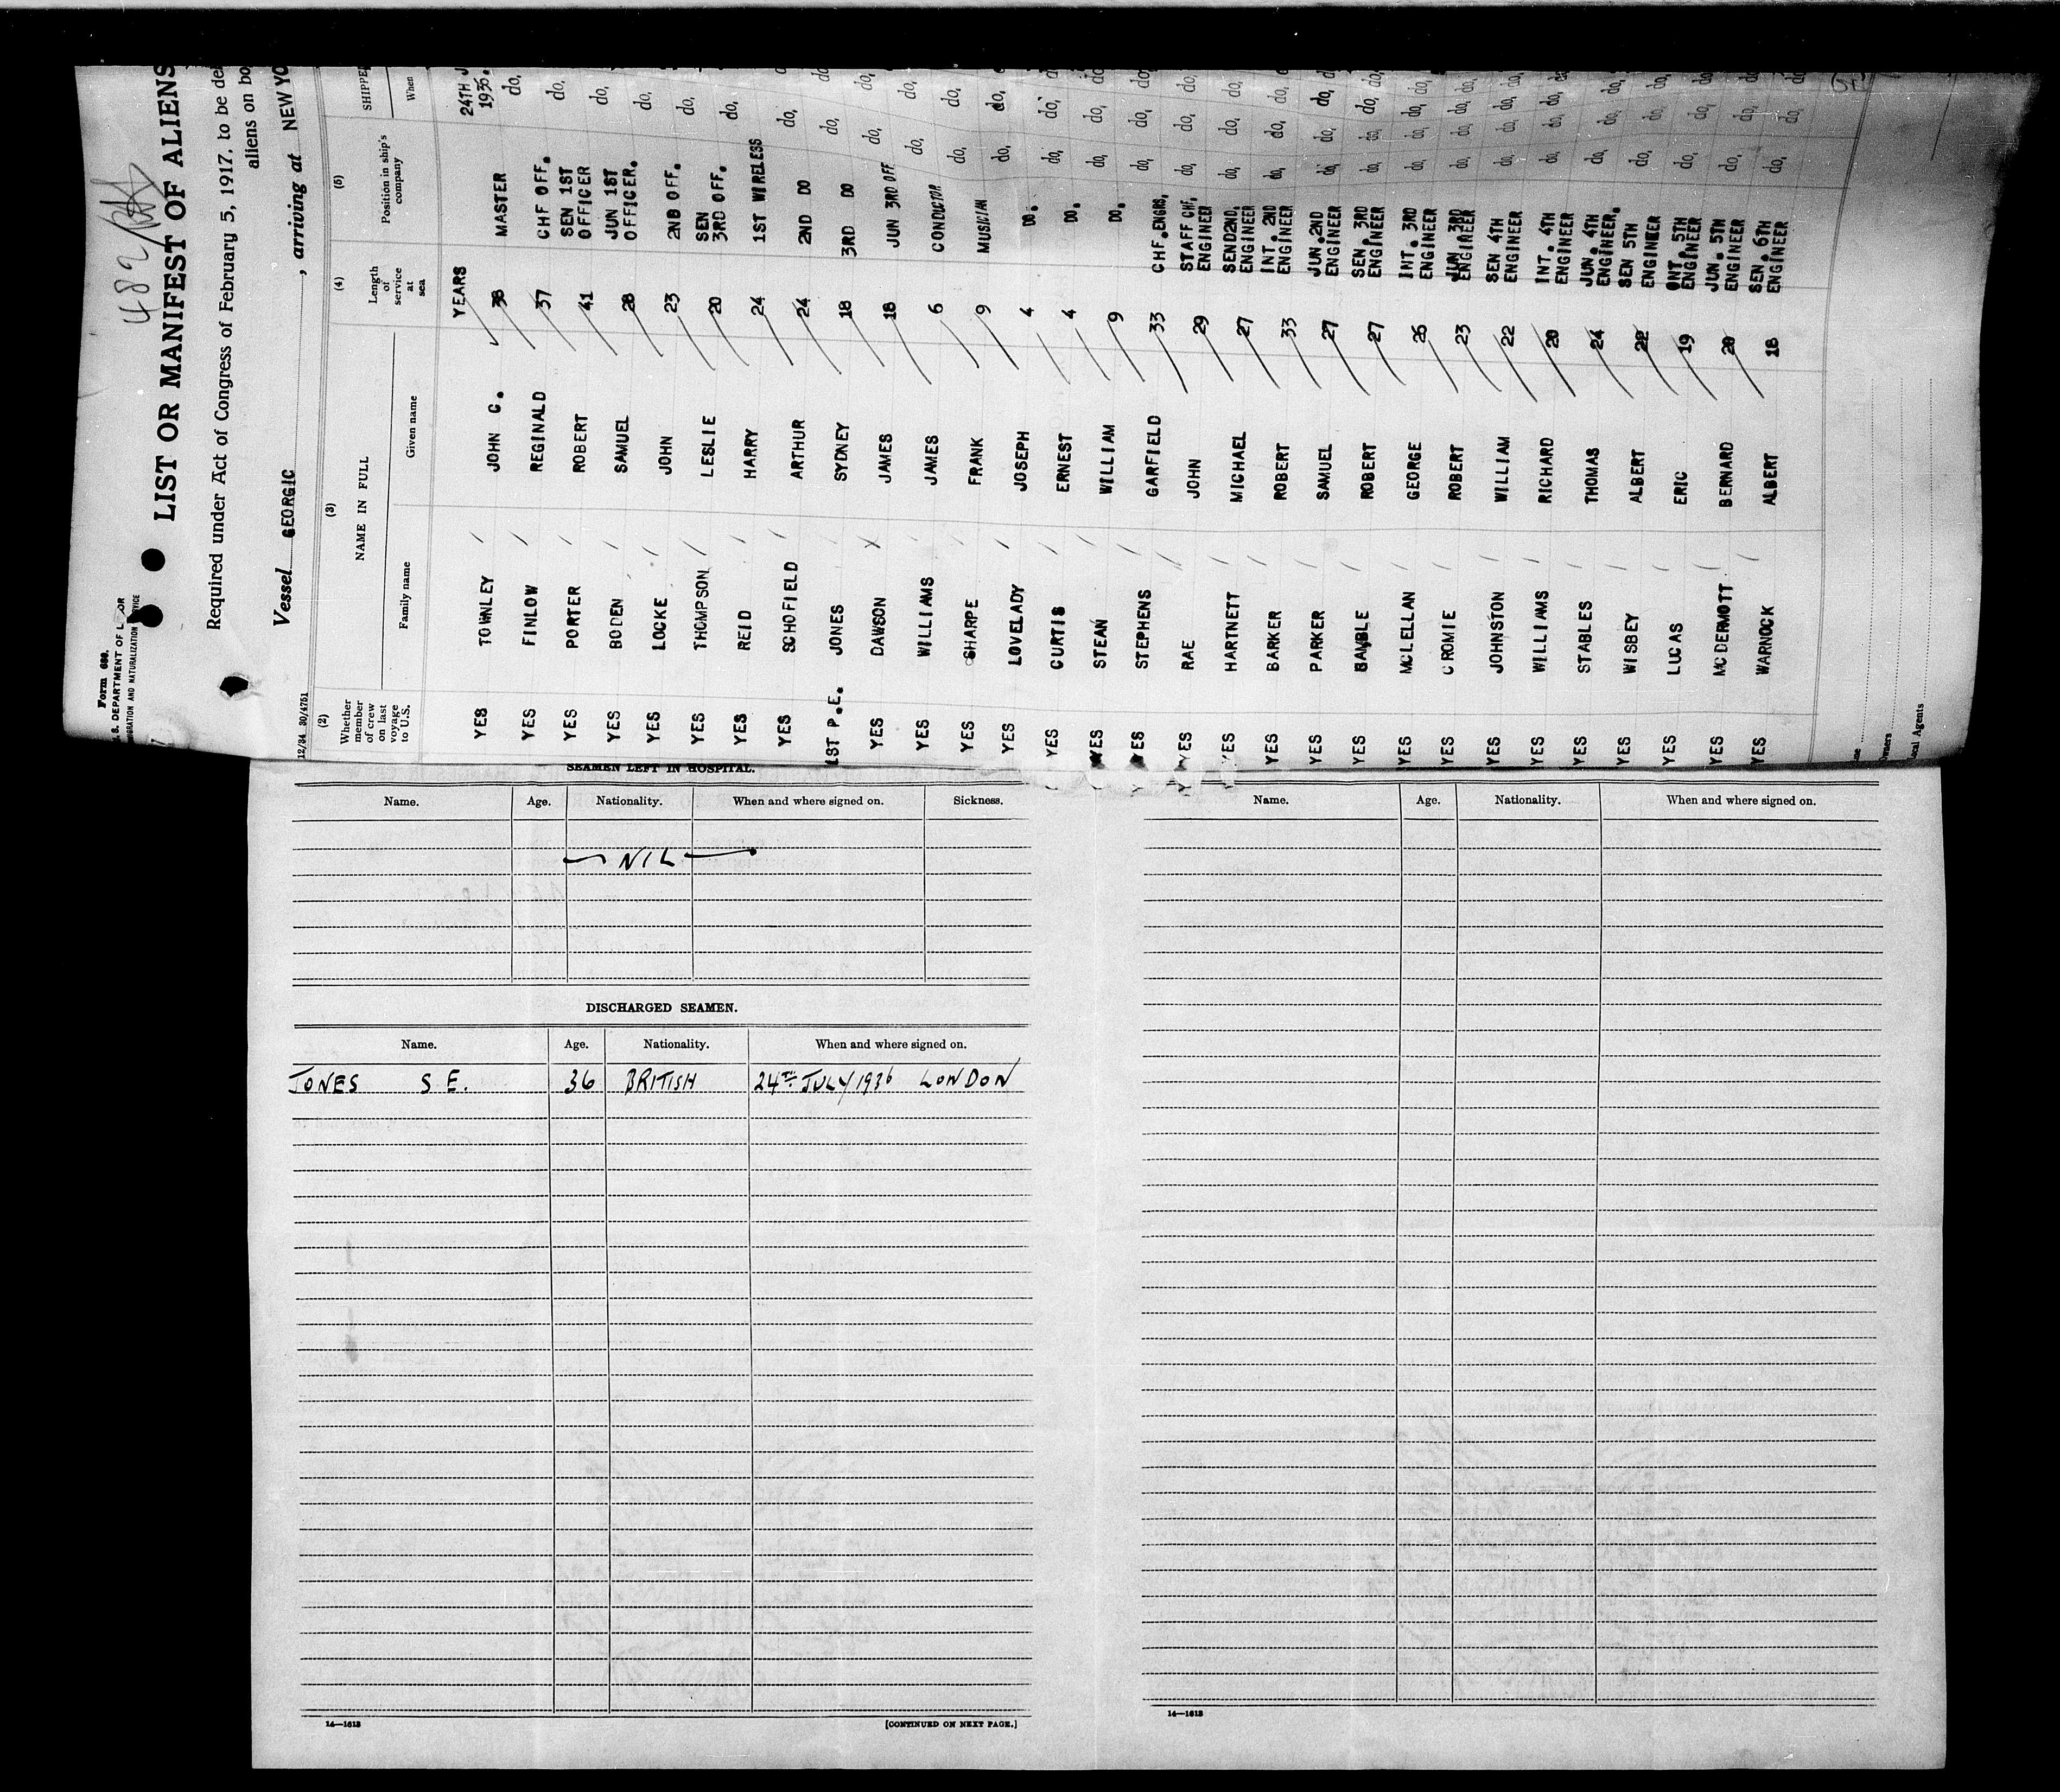 Form 680.
U. S. DEPARTMENT OF LABOR
IMMIGRATION AND NATURALIZATION SERVICE
482
LIST OR MANIFEST OF ALIENS
Required under Act of Congress of February 5, 1917, to be
aliens on
Vessel GEORGIC, arriving at NEW YO
12/34 30/4751
(2) (3) (4) (5)
Whether member of crew on last voyage to U.S. NAME IN FULL Length of service at sea Position in ship's company SHIPPE
Family name Given name When
YEARS 24TH J
YES TOWNLEY JOHN C. 38 MASTER 1935.
YES FINLOW REGINALD 37 CHF OFF. do,
YES PORTER ROBERT 41 SEN 1ST OFFICER do,
YES BODEN SAMUEL 28 JUN 1ST OFFICER. do,
YES LOCKE JOHN 23 2ND OFF. do,
YES THOMPSON LESLIE 20 SEN 3RD OFF. do,
YES REID HARRY 24 1ST WIRELESS do,
YES SCHOFIELD ARTHUR 24 2ND DO do,
1ST P.E. JONES SYDNEY 18 3RD DO do,
YES DAWSON JAMES 18 JUN 3RD OFF do,
YES WILLIAMS JAMES 6 CONDUCTOR do,
YES SHARPE FRANK 9 MUSICIAN do,
YES LOVELADY JOSEPH 4 DO. do,
YES CURTIS ERNEST 4 DO. do,
YES STEAN WILLIAM 9 DO. do,
YES STEPHENS GARFIELD 33 CHF.ENGRS. do,
YES RAE JOHN 29 STAFF CHF. ENGINEER do,
YES HARTNETT MICHAEL 27 SEN 2ND. ENGINEER do,
YES BARKER ROBERT 33 INT. 2ND ENGINEER do,
YES PARKER SAMUEL 27 JUN.2ND ENGINEER do,
YES ROBERT 27 SEN. 3RD ENGINEER do,
YES MCLELLAN GEORGE 26 INT. 3RD ENGINEER do,
YES CROMIE ROBERT 23 JUN 3RD ENGINEER do,
YES JOHNSTON WILLIAM 22 SEN 4TH ENGINEER do,
YES WILLIAMS RICHARD 20 INT. 4TH ENGINEER do,
YES STABLES THOMAS 24 JUN. 4TH ENGINEER. do,
YES WISBEY ALBERT 22 SEN 5TH ENGINEER do,
YES LUCAS ERIC 19 INT. 5TH ENGINEER do,
YES MCDERMOTT BERNARD 20 JUN. 5TH ENGINEER do,
YES WARNOCK ALBERT 18 SEN. 6TH ENGINEER do,
SEAMEN LEFT IN HOSPITAL.
Name. Age. Nationality. When and where signed on. Sickness.
NIL
DISCHARGED SEAMEN.
Name. Age. Nationality. When and where signed on.
JONES S E. 36 BRITISH 24TH JULY 1936 LONDON
14—1613 [CONTINUED ON NEXT PAGE.]
Name. Age. Nationality. When and where signed on.
14—1613